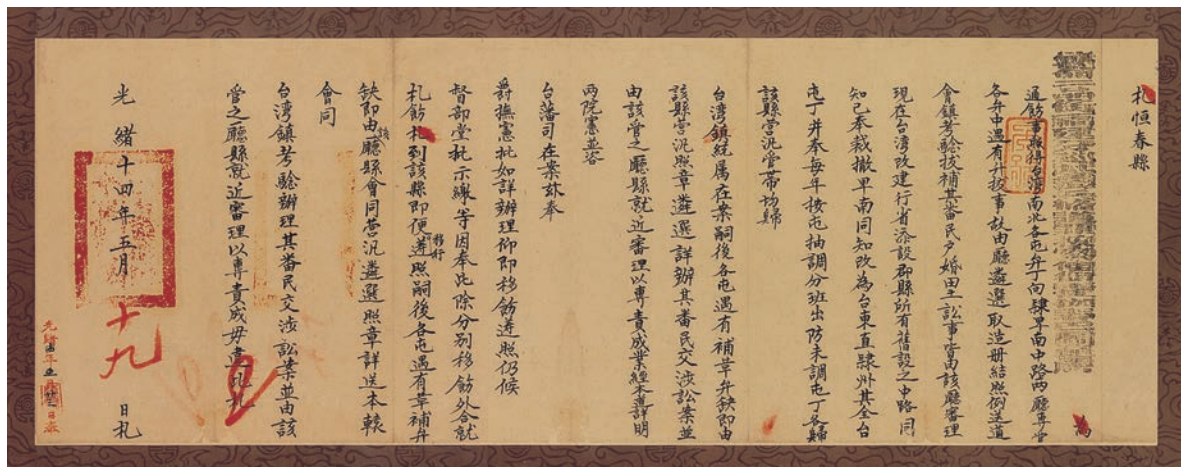 札恒春縣
為
通飭事照得台灣南北各屯弁丁向隸卑南中路兩廳專管
各弁中遇有升拔事故由廳遴選取造册結照例送道
會鎮考驗拔補其番民戶婚田土訟事皆由該廳審理
現在台灣改建行省添設郡縣所有舊設之中路同
知已奉裁撤卑南同知改為台東直隸州其全台
屯丁并奉每年按屯抽調分班出防未調屯丁各歸
該縣營汛管帶均歸
台灣鎮統属在案嗣後各屯遇有補革弁缺即由
該縣營汛照章遴選詳辦其番民交涉訟案並
由該管之廳縣就近審理以專責成業經本道詳明
兩院憲並咨
台藩司在案玆奉
爵撫憲批如詳辦理仰即移飭遵照仍候
督部堂批示繳等因奉此除分别移飭外合就
札飭札到該縣即便移行遵照嗣後各屯遇有革補弁
缺即由該廳縣會同营汛遴選照章詳送本轅
會同
台灣鎮考驗辦理其番民交涉訟案並由該
管之廳縣就近審理以專責成毋違此札
光緒十四年五月十九日札